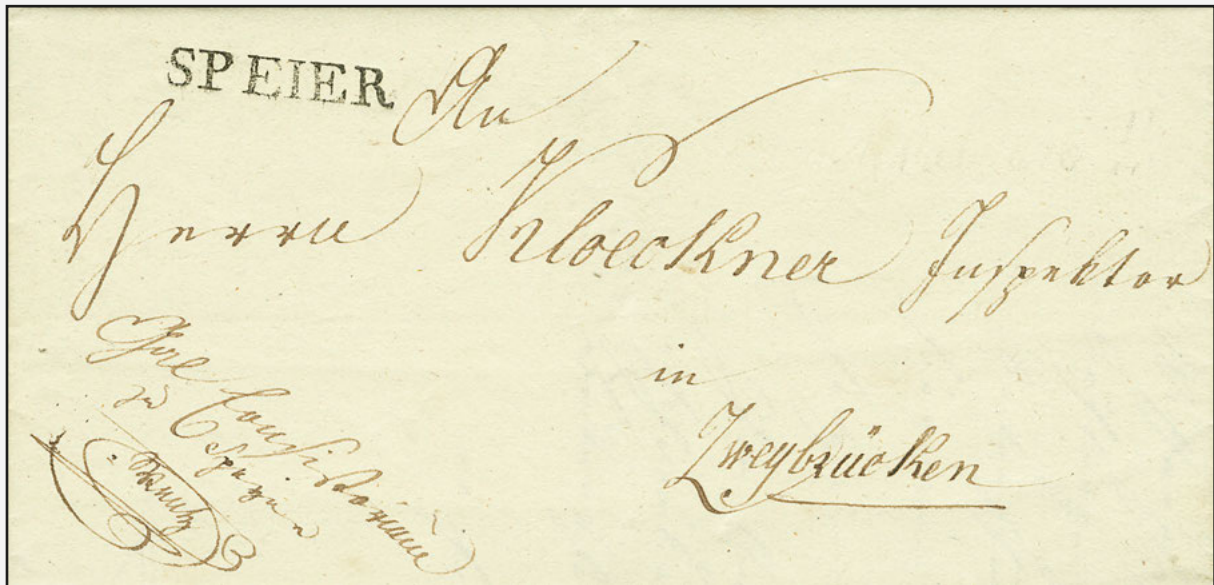 SPEIER
An
Herrn Kloeckner Inspektor
in
Zweybrücken
Gral Consistorium
zu
Speyer